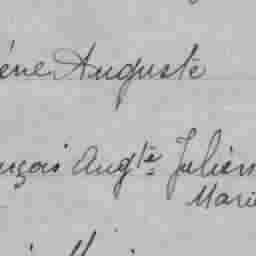 ène Auguste
nçois Aug^te Julien
Marie